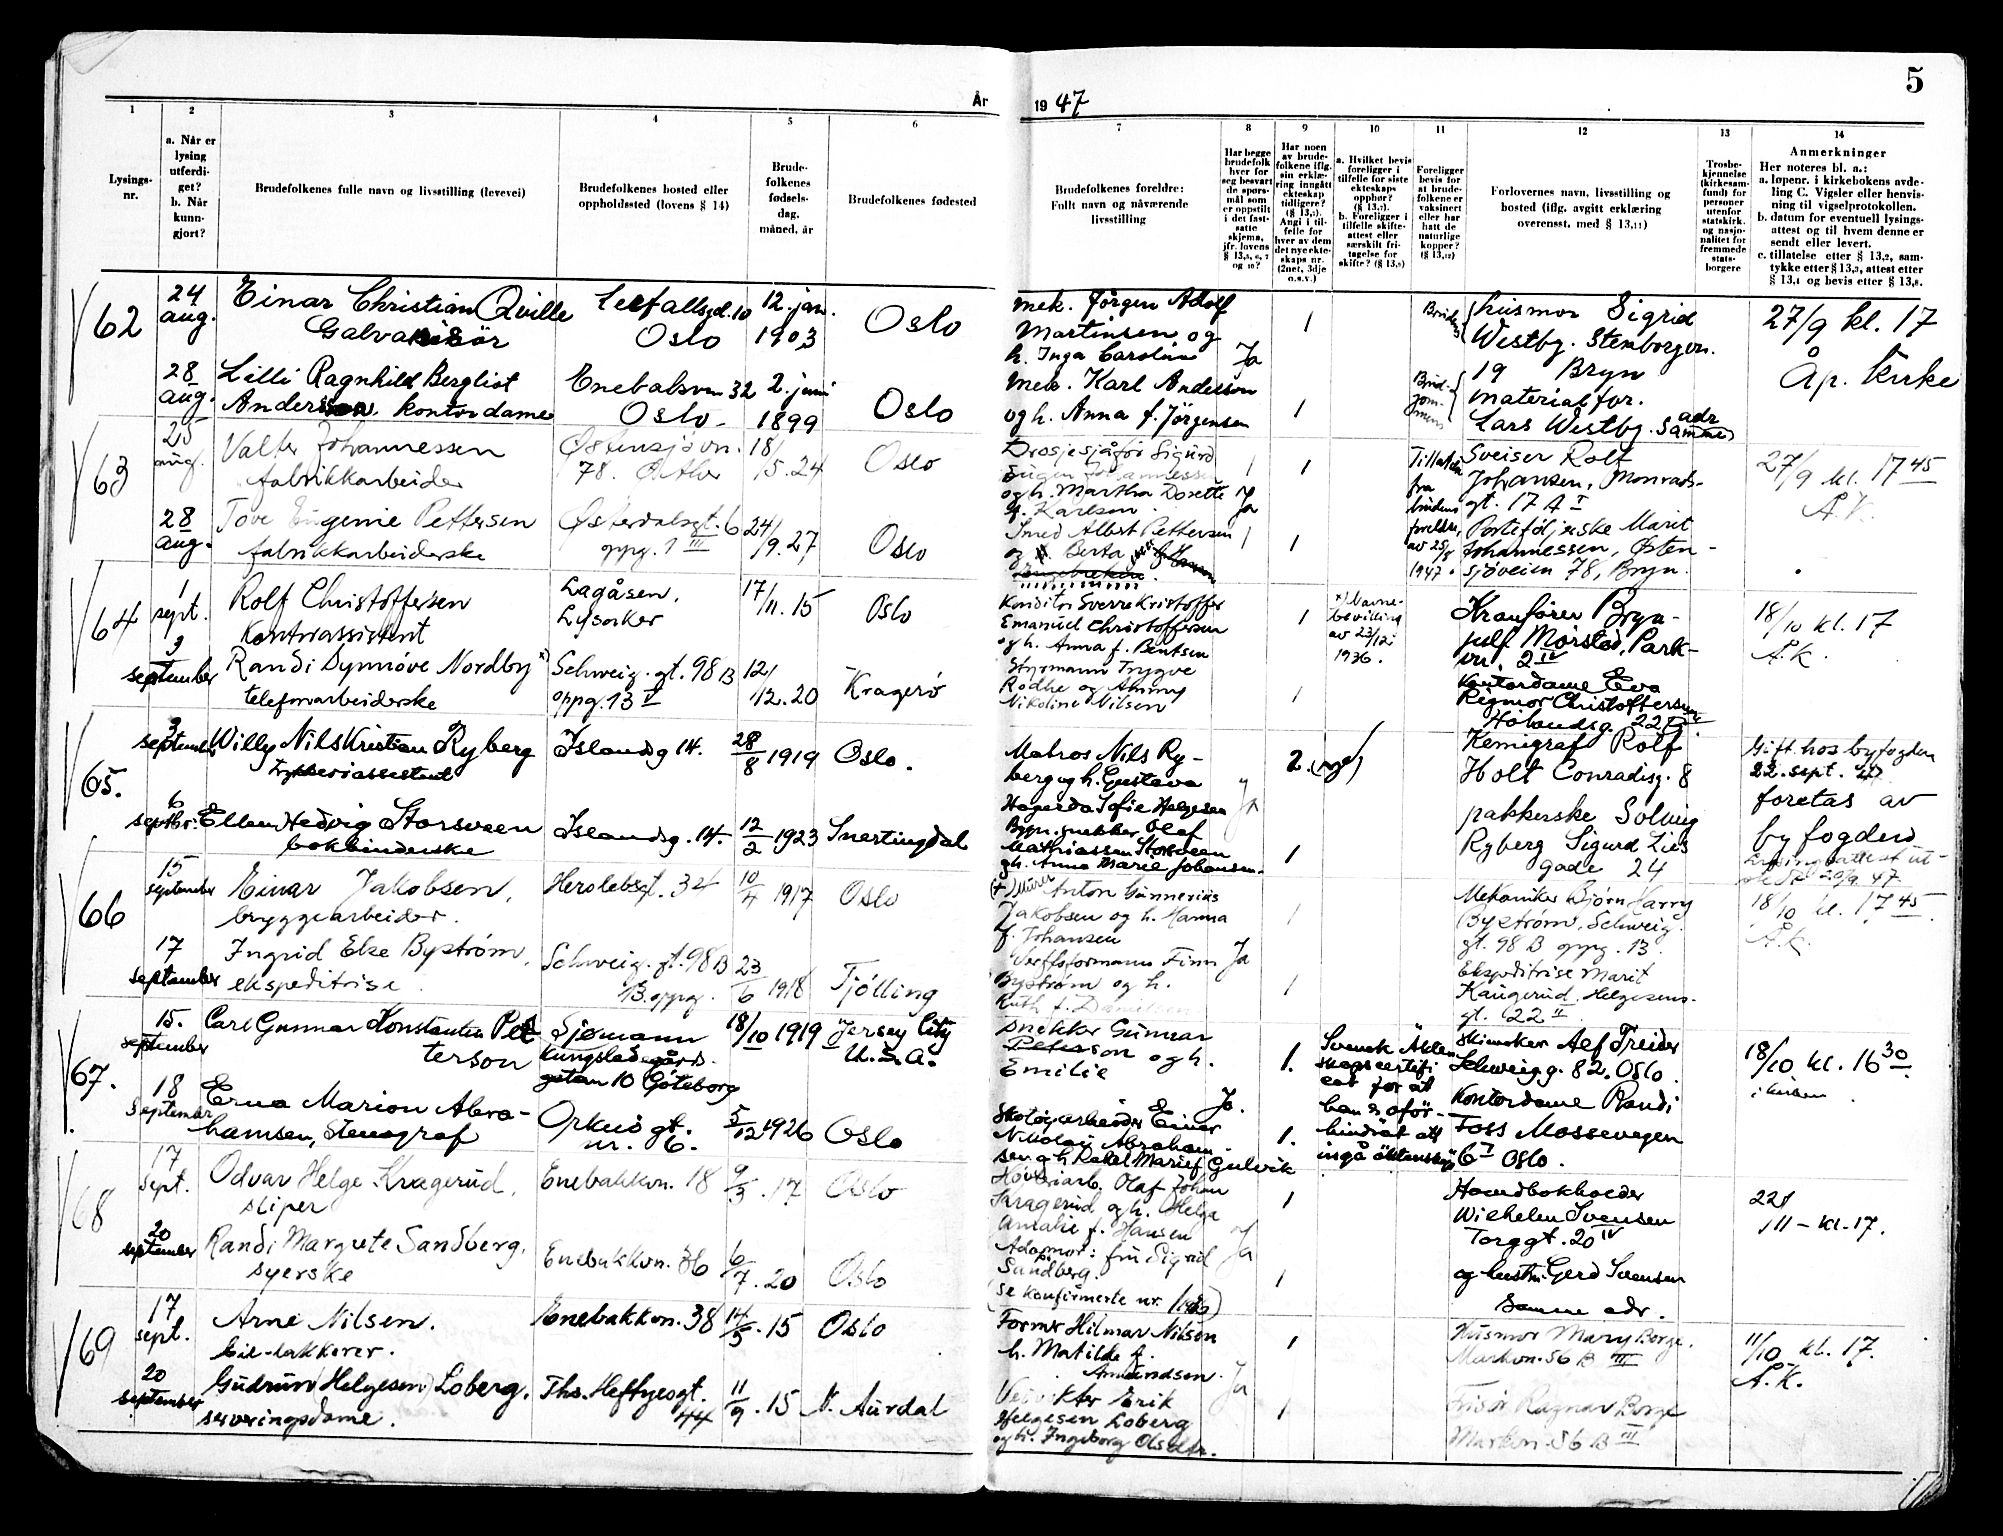 5
År
19 47
1
2
3
4
5
6
7
8
9
10
11
12
13
14
Lysings-
nr.
a. Når er
lysing
utferdi-
get?
b. Når
kunn-
gjort?
Brudefolkenes fulle navn og livsstilling (levevei)
Brudefolkenes bosted eller
oppholdssted (lovens § 14)
Brude-
folkenes
fødsels-
dag,
måned, år
Brudefolkenes fødested
Brudefolkenes foreldre:
Fullt navn og nåværende
livsstilling
Har begge
brudefolk
hver for
seg besvart
de spørs-
mål som
er oppstilt
i det fast-
satte
skjema,
jfr. lovens
Har noen
av brude-
folkene iflg.
sin erklæ-
ring inngått
ekteskap
tidligere?
Angi i til-
felle for
hver av dem
det nye ekte-
skaps nr.
(2net, 3dje
o.s.v.)
a. Hvilket bevis
foreligger i
tilfelle for siste
ekteskaps
opphør?
b. Foreligger i
tilfelle skifte-
attest eller
særskilt fri-
tagelse for
skifte?
Foreligger
bevis for
at brude-
folkene er
vaksinert
eller har
hatt de
naturlige
kopper?
Forlovernes navn, livsstilling og
bosted (iflg. avgitt erklæring
overensst. med § 13,11)
Trosbe-
kjennelse
(kirkesam-
funn) for
personer
utenfor
statskirk.
og nasjo-
nalitet for
fremmede
stats-
borgere
Anmerkninger
Her noteres bl. a.:
a. løpenr. i kirkebokens avde-
ling C. Vigsler eller henvis-
ning til vigselprotokollen.
b. datum for eventuell lysings-
attest og til hvem denne er
sendt eller levert.
c. tillatelse etter § 13,2, sam-
tykke etter § 13,3, attest etter
§ 13,4 og bevis etter § 13,8.
62
24
aug.
Einar Christian Qville
Galvanisør
10
Oslo
12. jan.
1903
Oslo
mek. Jörgen Adolf
Martinsen og
h. Inga Caroline
Ja
1
husmor Sigrid
Westby. Stenborgvn.
27/9 kl. 17
Åp. kirke
28
aug.
Lilli Ragnhild Bergliot
Anderson, kontordame
32
Oslo
2. juni
1899
Oslo
mek. Karl Anderson
og h. Anna f. Jørgensen
1
19 Bryn
materialfor.
Lars Westby. Samme adr
63
25
aug.
Valter Johannessen
fabrikkarbeider
Østensjøvn.
78.
18/5.24
Oslo
Drosjesjåfør Sigurd
Eugen Johannessen
og h. Martha Dosette
f. Karlson
Ja
1
Tillatelse
fra
brudens
foreldre,
av 25/8
1947.
Sveiser Rolf
Johansen, Monrads-
gt. 17 A I
27/9 kl. 17 45
Å.K.
28
aug.
Tove Eugenie Pettersen
fabrikkarbeiderske
Østerdalsgt. 6
oppg. 1 III
24/9.27
Oslo
Smed Albert Pettersen
og h. Berta
1
Porteføljeske Marit
Johannessen, Østen-
sjøveien 78, Bryn.
64
1
sept.
Rolf Christoffersen
Kontorassistent
Lagåsen,
Lysaker
17/11.15
Oslo
Konditor Sverre Kristoffer
Emanuel Christoffersen
og h. Anna f. Bentsen
1
x) Navne-
bevilling
av 23/12
1936.
Kranfører Bryn-
julf Morstad, Park-
vn. 2 IV
18/10 kl. 17
Å.K.
3
september
Randi Synnøve Nordby x)
telefonarbeiderske
Schweig. gt. 98 B
oppg. 13 V
12/12.20
Kragerø
Styrmann Trygve
Rodhe og Ammy
Nikoline Nilsen
1
Kontordame Eva
Rigmor Christoffersen
65.
3
september
Willy Nils Kristian Ryberg
Islandsg 14.
28/8 1919
Oslo.
Matros Nils Ry-
berg og h. Gustava
Hagerda Sofie Helgesen
Ja
2.
Kemigraf Rolf
Holt Conradisg. 8
Gift hos byfogden
22. sept. 47
6
septbr.
Ellen Hedvig Storsveen
bokbinderske
Islandsg. 14.
12/2 1923
Snertingdal
Bygn. snekker Olaf
Mathiassen Storsveen
og h. Anna Marie Johansen
1
pakkerske Solveig
Ryberg Sigurd Lies
gade 24
foretas av
byfogden
Lysingsattest ut-
20/9 47
66
15
september
Einar Jakobsen,
bryggearbeider.
Herslebsgt. 34
10/4 1917
Oslo
(+) Murer Anton Gunnerius
Jakobsen og h. Hanna
f. Johansen
1
Mekaniker Bjørn Harry
Byström, Schweig.
gt. 98 B oppg. 13.
18/10 kl. 17 45.
Å.K.
17
september
Ingrid Else Byström,
ekspeditrise.
Schweig. gt. 98 B
13. oppg.
23/6 1918
Tjølling
Verftsformann Finn
Byström og h.
Ruth f. Danielsen
Ja
1
Ekspeditrise Marit
Kaugerud, Helgesens.
gt. 22 II
67.
15.
september
Carl Gunnar Konstantin Pet
terson
Sjømann
Kungsladugårds.
gatan 10 Göteborg
18/10 1919
Jersey City
U.S.A.
Snekker Gunnar
Peterson og h.
Emilie
1.
Svensk Äkten
skapscertifi
cat for at
han är oför-
hindrat att
ingå äktenskap
Alf Freider
Schweigg. 82. Oslo.
18/10 kl. 16 30.
18
September
Erna Marion Abra-
hamsen, Stenograf
Orknøgt.
nr. 6.
5/12 1926
Oslo
Skotøyarbeider Einar
Nikolai Abraham
sen og h Rakel Marie f Gulvik
Ja.
1.
Kontordame Randi
Foss Mossevegen
6 I Oslo.
68
17
sept.
Odvar Helge Kragerud,
sliper
Enebakkvn. 18
9/3.17
Oslo
Høvleriarb. Olaf Johan
Kragerud og h. Helga
Amalie f. Hansen
1
Hovedbokholder
Wilhelm Svensen
Torggt. 20 IV
22/11 - kl. 17.
20
september
Randi Margrete Sandberg,
syerske
Enebakkvn. 36
6/7.20
Oslo
Adopmor: fru Sigrid
Sandberg.
(se konfirmerte nr. 1
Ja
1
og hustru Gerd Svensen
Samme adr.
69
17
sept.
Arne Nilsen.
bil-lakkerer.
Enebakkvn. 38
14/5.15
Oslo
Former Hilmar Nilsen
h. Matilde f.
Amundsen.
1
Husmor Mary Borge,
Markvn. 56 B III
11/10 kl. 17.
Å.K.
20
september
Gudrun Helgesen Loberg,
serveringsdame.
Ths. Heftyesgt.
44
11/9.15
N. Aurdal
Veivokter Erik
Helgesen Loberg
og h. Ingeborg Olsdtr.
Ja
1
Frisør Ragnar Borge
Markvn. 56 B III